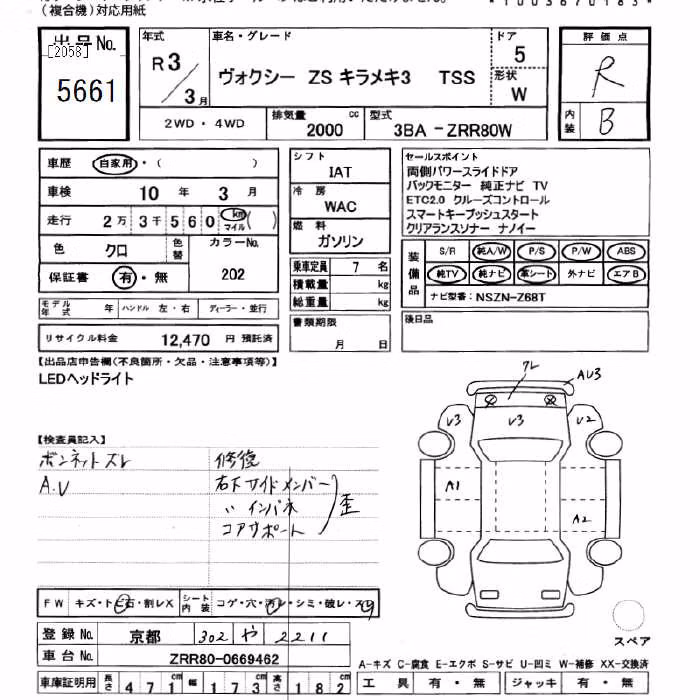 (複合機)対応用紙
*1003670183*
出品No.
[2058]
5661
年式
R3/3月
車名・グレード
ヴォクシー ZS キラメキ3 TSS
ドア
5
形状
W
2WD・4WD
排気量
2000 cc
型式
3BA-ZRR80W
評価点
R
内装
B
車歴 自家用・( )
車検 10年3月
走行 2万3千560 km マイル ( )
色 クロ
色替
カラーNo.
202
保証書 有・無
モデル年式 年 ハンドル 左・右 ディーラー・並行
リサイクル料金 12,470 円 預託済
シフト
IAT
冷房
WAC
燃料
ガソリン
乗車定員 7 名
積載量 kg
総重量 kg
書類期限
月 日
セールスポイント
両側パワースライドドア
バックモニター 純正ナビ TV
ETC2.0 クルーズコントロール
スマートキープッシュスタート
クリアランスソナー ナノイー
装備品
S/R 純A/W P/S P/W ABS
純TV 純ナビ 革シート 外ナビ エアB
ナビ型番: NSZN-Z68T
後日品
【出品店申告欄(不良箇所・欠品・注意事項等)】
LEDヘッドライト
【検査員記入】
ボンネットズレ
A.U
修復
右下サイドメンバー
〃 インパネ
コアサポート
歪
ズレ
AU3
U3
V3
U2
A1
A2
スペア
FW キズ・トビ石・割レX
シート内装 コゲ・穴・汚レ・シミ・破レ・スレ
登録No. 京都 302 や 2211
車台No. ZRR80-0669462
A-キズ C-腐食 E-エクボ S-サビ U-凹ミ W-補修 XX-交換済
車庫証明用 長さ 471cm 幅 173cm 高さ 182cm
工具 有・無 ジャッキ 有・無